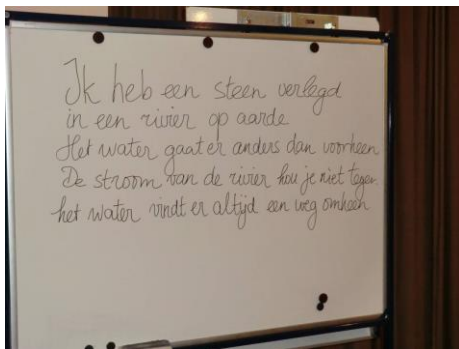 Ik heb een steen verlegd
in een rivier op aarde
Het water gaat er anders dan voorheen
De stroom van de rivier hou je niet tegen
het water vindt er altijd een weg omheen